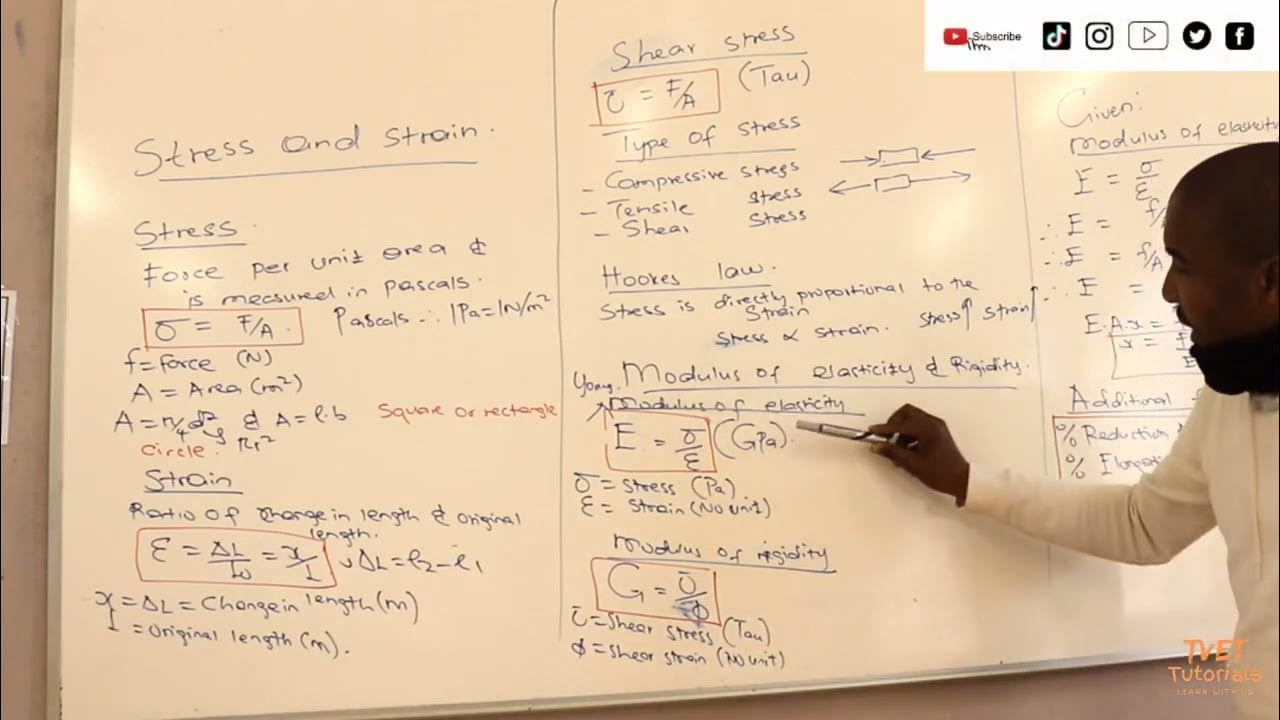 Subscribe
Stress and Strain.
Stress
Force per unit area &
is measured in pascals.
σ = F/A. Pascals ∴ 1Pa=1N/m²
f=force (N)
A = Area (m²)
A = π/4 d² & A = l·b Square or rectangle
circle. πr²
Strain
Ratio of change in length & original
length.
ε = ΔL/L₀ = x/l ΔL = l₂ - l₁
x = ΔL = Change in length (m)
l = Original length (m).
Shear stress
τ = F/A (Tau)
Type of stress
- Compressive stress
- Tensile stress
- Shear stress
Hookes law.
Stress is directly proportional to the
Strain
Stress ∝ Strain. Stress↑ Strain↑
Modulus of elasticity & Rigidity.
Modulus of elasticity
E = σ/ε (GPa).
σ = Stress (Pa)
ε = Strain (No unit)
Modulus of rigidity
G = τ/ϕ
τ = Shear stress (Tau)
ϕ = shear strain (No unit)
Given:
Modulus of elasticity
E = σ/ε
∴ E =
∴ E = f/A
∴ E =
E.A.x =
x =
Additional
% Reduction
% Elongati
TVET
Tutorials
LEARN WITH US